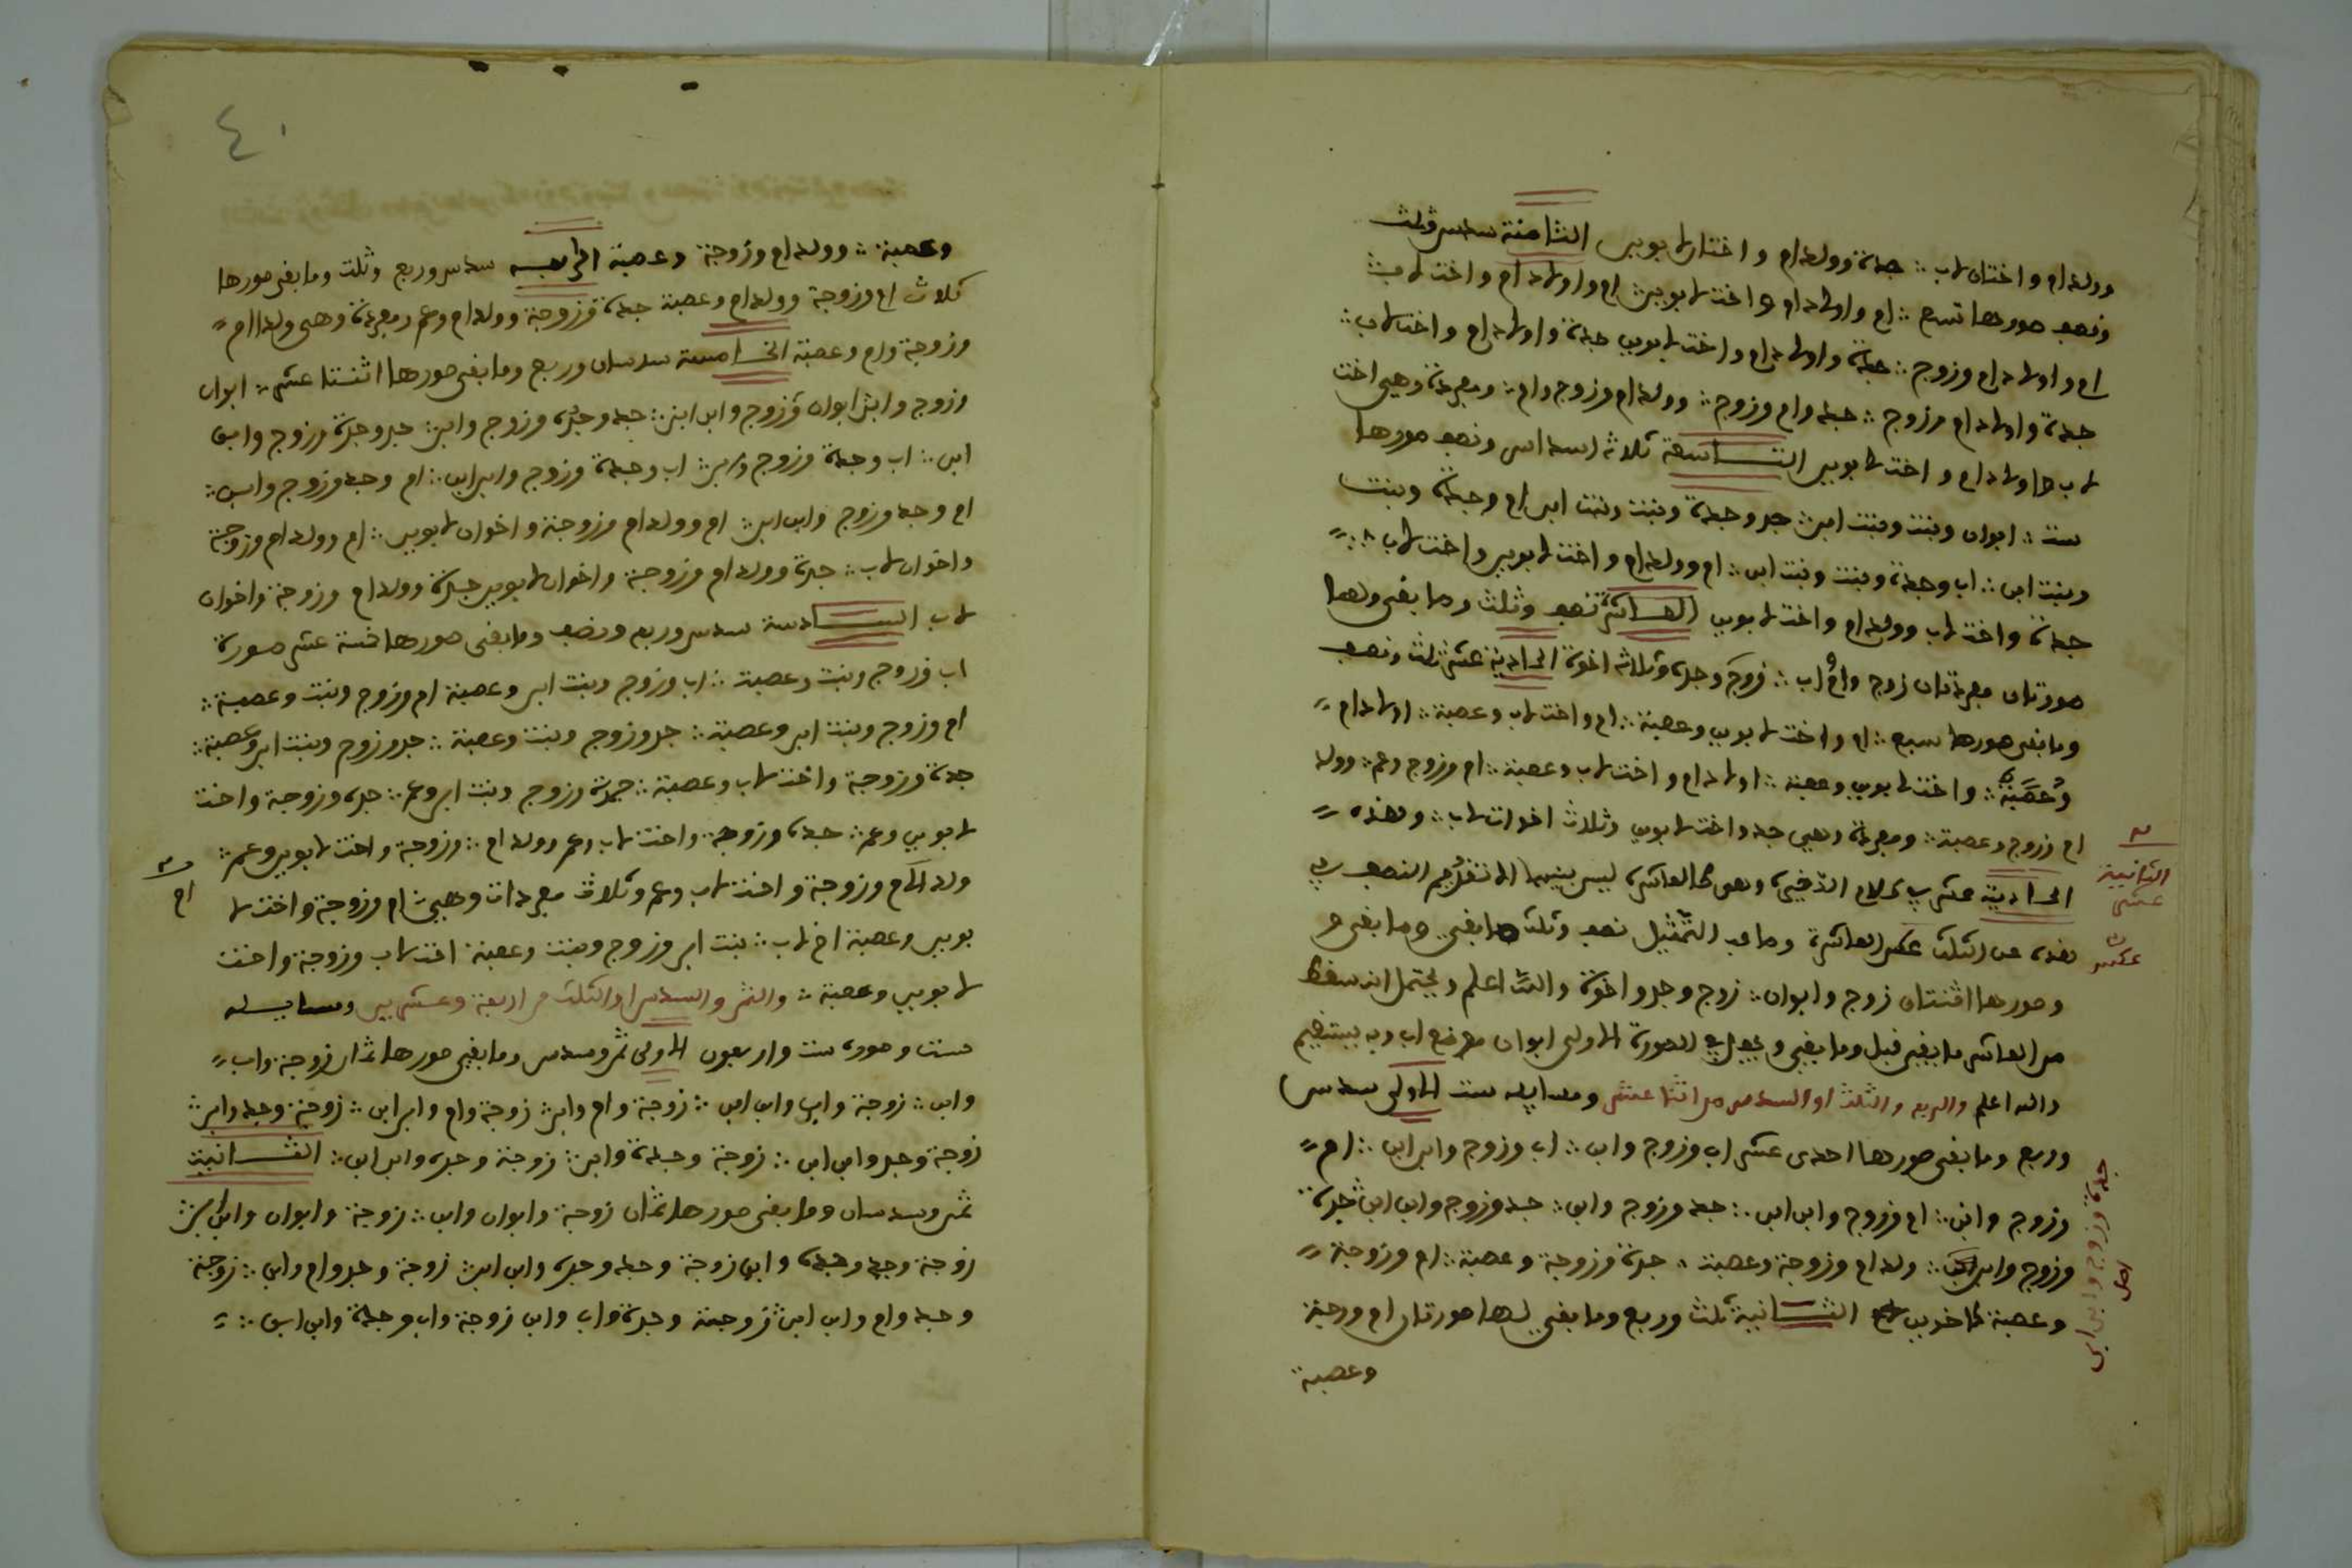 وولد ام واختان لاب ∴ جدة وولد ام واختان لابوين الثامنة سدس وثلث
ونصف صورها تسع ∴ ام واولاد ام واخت لابوين ∴ ام واولاد ام واخت لاب ∴
ام واولاد ام وزوج ∴ جدة واولاد ام واخت لابوين جدة واولاد ام واخت لاب ∴
جدة واولاد ام وزوج ∴ جد وام وزوج ∴ وولد ام وزوج وام ∴ ومفردة وهي اخت
لاب واولاد ام واخت لابوين التاسعة ثلاثة اسداس ونصف صورها
ست ∴ ابوان وبنت وبنت ابن ∴ جد وجدة وبنت وبنت ابن ام وجدة وبنت
وبنت ابن ∴ اب وجدة وبنت وبنت ابن ∴ ام وولد ام واخت لابوين واخت لاب ∴
جدة واخت لاب وولد ام واخت لابوين العاشرة نصف وثلث وما بقي ولها
صورتان مفردتان زوج وام واب ∴ زوج وجد وثلاثة اخوة الحادية عشر ثلث ونصف
وما بقي صورها سبع ∴ ام واخت لابوين وعصبة ∴ ام واخت لاب وعصبة ∴ اولاد ام
وعصبة ∴ واخت لابوين وعصبة ∴ اولاد ام واخت لاب وعصبة ∴ ام وزوج وعم ∴ وولد
ام وزوج وعصبة ∴ ومفردة وهي جد واخت لابوين وثلاث اخوات لاب ∴ وهذه
الحادية عشر في كلام الذخيرة وهو كالعاشرة ليس بينهما الا تقديم النصف في
هذه عن الثلث عكس العاشرة وما عد التمثيل نصف وثلث ما بقي وما بقي
وصورها اثنتان زوج وابوان ∴ زوج وجد واخوة والله اعلم ويحتمل انه سقط
من العاشرة ما بقي قبل وما بقي ويجعل في الصورة الاولى ابوان موضع اب وبه يستقيم
والله اعلم والربع والثلث او السدس من اثنا عشر ومسايله ست الاولى سدس
وربع وما بقي صورها احدى عشر اب وزوج وابن ∴ اب وزوج وابن ابن ∴ ام
وزوج وابن ∴ ام وزوج وابن ابن ∴ جد وزوج وابن ∴ جد وزوج وابن ابن ∴ جدة
وزوج وابن ∴ ولد ام وزوجة وعصبة ∴ جدة وزوجة وعصبة ∴ ام وزوجة
وعصبة الثانية ثلث وربع وما بقي لها صورتان ام وزوجة
وعصبة
الثانية
عشر
عكس
جدة وزوج وابن ابن
اصل
٤٠
وعصبة ∴ وولد ام وزوجة وعصبة الرابعة سدس وربع وثلث وما بقي صورها
ثلاث ام وزوجة وولد ام وعصبة جدة وزوجة وولد ام وعم ومفردة وهي ولد ام
وزوجة وام وعصبة الخامسة سدسان وربع وما بقي صورها اثنتا عشر ∴ ابوان
وزوج وابن ابوان وزوج وابن ابن ∴ جد وجدة وزوج وابن ∴ جد وجدة وزوج وابن
ابن ∴ اب وجدة وزوج وابن ∴ اب وجدة وزوج وابن ابن ∴ ام وجد وزوج وابن ∴
ام وجد وزوج وابن ابن ∴ ام وولد ام وزوجة واخوان لابوين ∴ ام وولد ام وزوجة
واخوان لاب ∴ جدة وولد ام وزوجة واخوان لابوين جدة وولد ام وزوجة واخوان
لاب السادسة سدس وربع ونصف وما بقي صورها خمسة عشر صورة
اب وزوج وبنت وعصبة ∴ اب وزوج وبنت ابن وعصبة ام وزوج وبنت وعصبة ∴
ام وزوج وبنت ابن وعصبة ∴ جد وزوج وبنت وعصبة ∴ جد وزوج وبنت ابن وعصبة ∴
جدة وزوجة واخت لاب وعصبة ∴ جدة وزوج وبنت ابن وعم ∴ جدة وزوجة واخت
لابوين وعم ∴ جدة وزوجة واخت لاب وعم وولد ام ∴ وزوجة واخت لابوين وعم ∴
ولد الام وزوجة واخت لاب وعم وثلاث مفردات وهي ∴ ام وزوجة واخت لا
بوين وعصبة اخ لاب ∴ بنت ابن وزوج وبنت وعصبة اخت لاب وزوجة واخت
لابوين وعصبة ∴ والثمن والسدس او الثلث من اربعة وعشرين ومسايله
ست وصوره ست واربعون الاولى ثمن وسدس وما بقي صورها ثمان زوجة واب
وابن ∴ زوجة واب وابن ابن ∴ زوجة وام وابن ∴ زوجة وام وابن ابن ∴ زوجة وجد وابن ∴
زوجة وجد وابن ابن ∴ زوجة وجدة وابن ∴ زوجة وجدة وابن ابن ∴ الثانية
ثمن وسدسان وما بقي صورها ثمان زوجة وابوان وابن ∴ زوجة وابوان وابن ابن ∴
زوجة وجد وجدة وابن زوجة وجد وجدة وابن ابن ∴ زوجة وجد وام وابن ∴ زوجة
وجد وام وابن ابن ∴ زوجة وجدة واب وابن زوجة واب وجدة وابن ابن ∴
ام